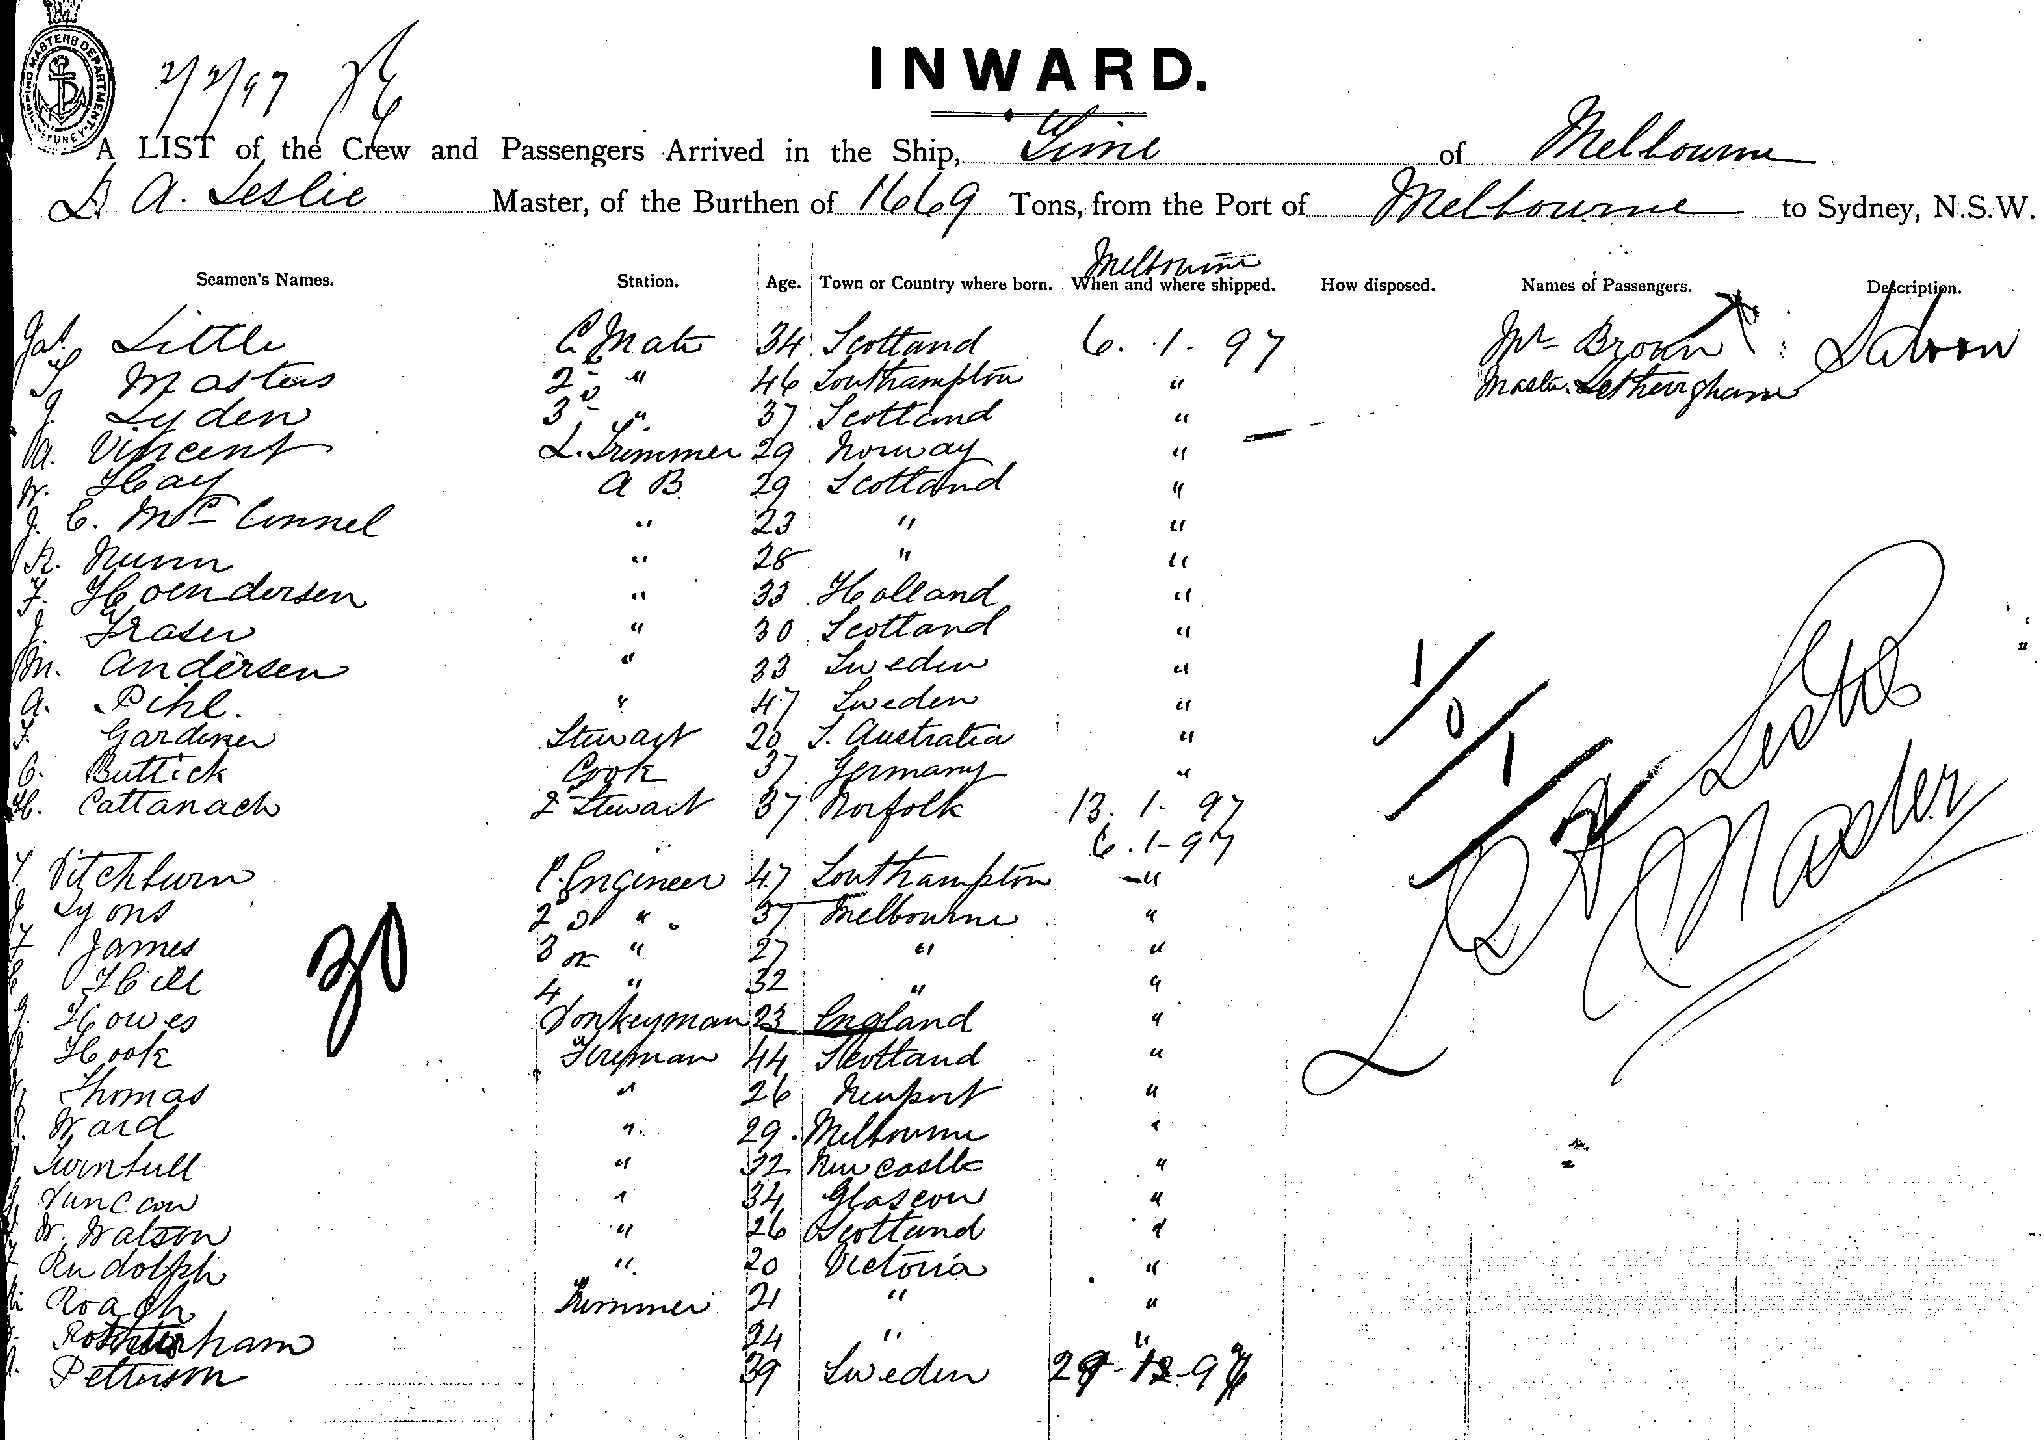 2/2/97
INWARD.
A LIST of the Crew and Passengers Arrived in the Ship, Time of Melbourne
D. A. Leslie Master, of the Burthen of 1669 Tons, from the Port of Melbourne to Sydney, N.S.W.
Melbourne
Seamen's Names. Station. Age. Town or Country where born. When and where shipped. How disposed. Names of Passengers. Description.
Jas. Little C. Mate 34 Scotland 6. 1. 97 Mr Brown Saloon
T. Masters 2nd " 46 Southampton " Master Letheringham
J. Lyden 3rd " 37 Scotland "
A. Vincent L. Trimmer 29 Norway "
W. Hay A B 29 Scotland "
J. C. McConnel " 23 " "
R. Nunn " 28 " "
F. Hoendersen " 33 Holland "
J. Fraser " 30 Scotland "
M. Andersen " 33 Sweden "
A. Pihl. " 47 Sweden "
F. Gardiner Stewart 20 S. Australia "
C. Buttick Cook 37 Germany "
H. Cattanach 2 Stewart 37 Norfolk 13. 1. 97
6. 1 - 97
Ditchburn C. Engineer 47 Southampton "
J. Lyons 2nd " 37 Melbourne "
F. James 3 " 27 " "
Hill 4 " 32 " "
J. Howes Donkeyman 23 England "
Hook Fireman 44 Scotland "
Thomas " 26 Newport "
Ward " 29 Melbourne "
Turnbull " 32 Newcastle "
Duncan " 34 Glascow "
W. Watson " 26 Scotland "
Rudolph " 20 Victoria "
Roach Trimmer 21 " "
24 " "
Petterson 39 Sweden
30
1/0/1/
D A Leslie
Master